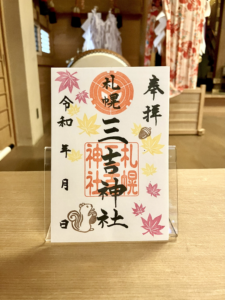 奉拝
札幌
三吉神社
札幌
三吉
神社
令和 年 月 日